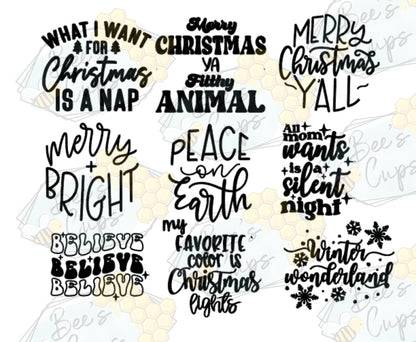 WHAT I WANT
FOR
Christmas
IS A NAP
Merry
CHRISTMAS
YA
Filthy
ANIMAL
MERRY
Christmas
Y'ALL
merry
+
BRIGHT
PEACE
on
Earth
All
mom
wants
is a
silent
night
BELIEVE
BELIEVE
BELIEVE
my
FAVORITE
color is
Christmas
lights
Winter
wonderland
Bee's
Cups
Bee's
Cups
Bee's
Cups